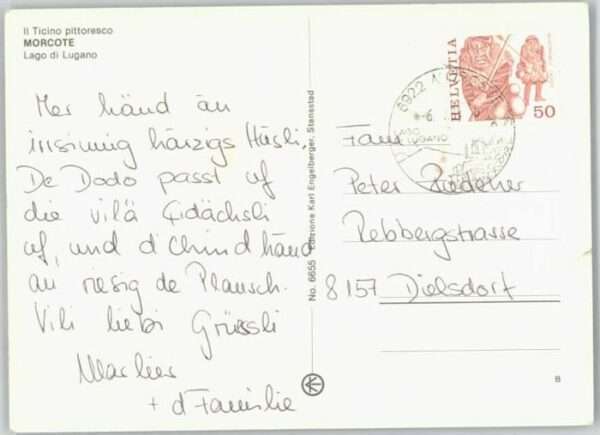 Il Ticino pittoresco
MORCOTE
Lago di Lugano
Mer händ än
irrsinnig härzigs Hüsli.
De Dodo passt uf
die vilä Eidächsli
uf, und d'Chind händ
än riesig de Plausch.
Vili liebi Grüessli
+ d'Familie
No. 6655 Edizione Karl Engelberger, Stansstad
HELVETIA
50
6922
LAGO
LUGANO
Fam.
Peter
Rebbergstrasse
8157 Dielsdorf
B